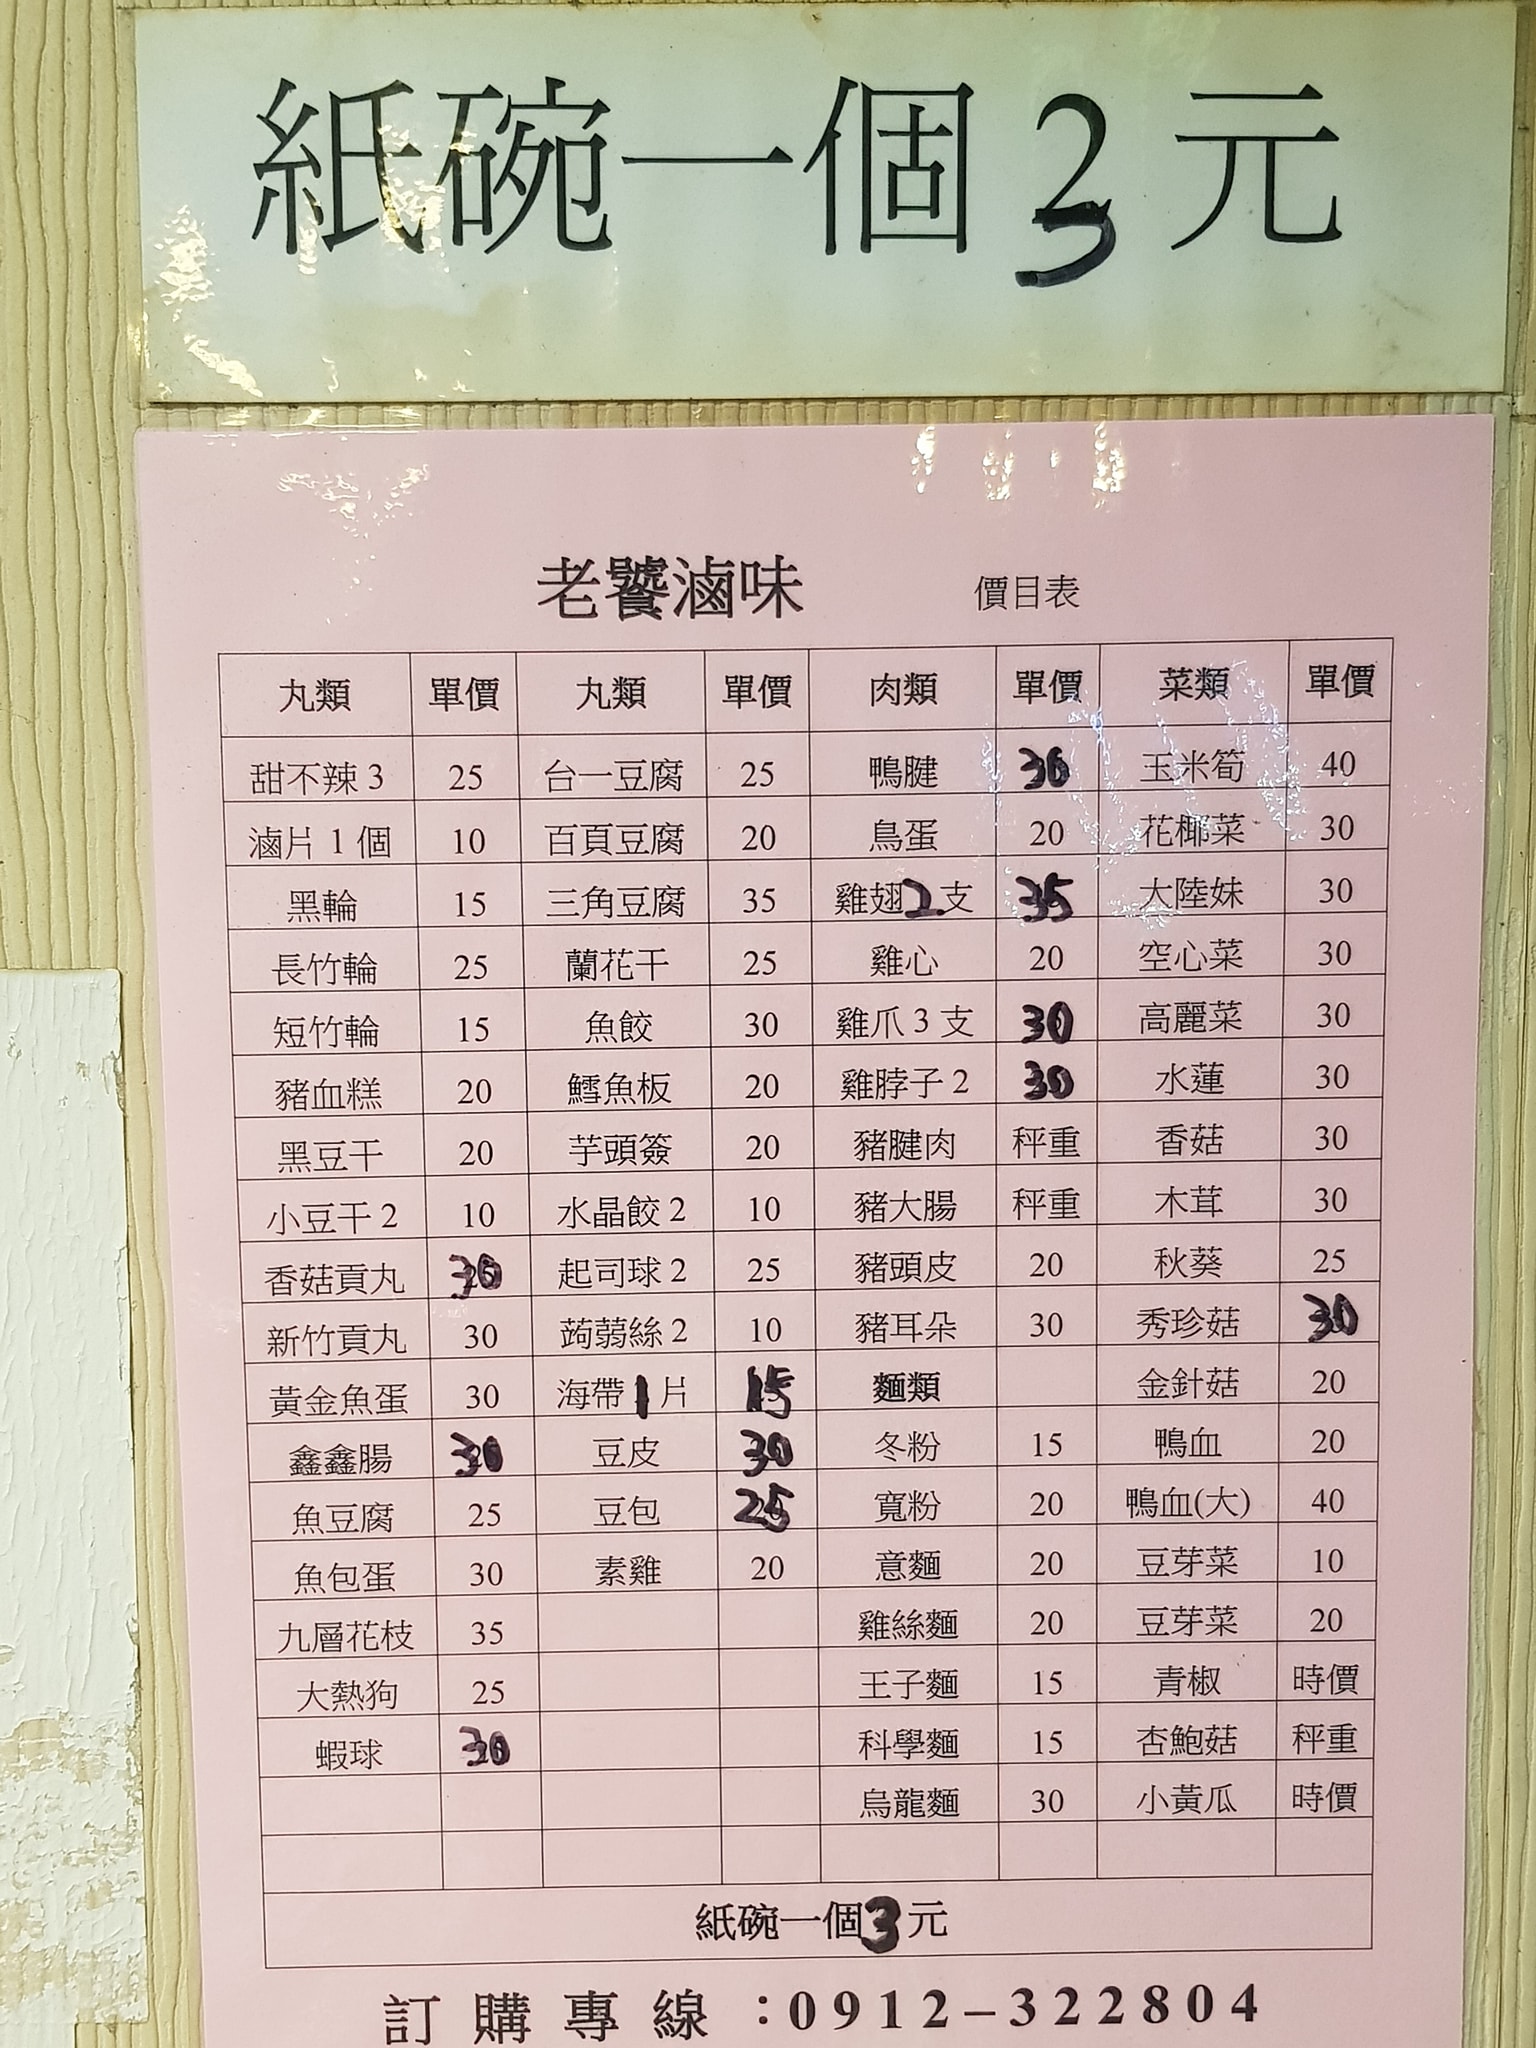 紙碗一個3元
老饕滷味 價目表
丸類 單價 丸類 單價 肉類 單價 菜類 單價
甜不辣3 25 台一豆腐 25 鴨腱 30 玉米筍 40
滷片1個 10 百頁豆腐 20 鳥蛋 20 花椰菜 30
黑輪 15 三角豆腐 35 雞翅2支 35 大陸妹 30
長竹輪 25 蘭花干 25 雞心 20 空心菜 30
短竹輪 15 魚餃 30 雞爪3支 30 高麗菜 30
豬血糕 20 鱈魚板 20 雞脖子2 30 水蓮 30
黑豆干 20 芋頭簽 20 豬腱肉 秤重 香菇 30
小豆干2 10 水晶餃2 10 豬大腸 秤重 木茸 30
香菇貢丸 30 起司球2 25 豬頭皮 20 秋葵 25
新竹貢丸 30 蒟蒻絲2 10 豬耳朵 30 秀珍菇 30
黃金魚蛋 30 海帶1片 15 麵類 金針菇 20
鑫鑫腸 30 豆皮 30 冬粉 15 鴨血 20
魚豆腐 25 豆包 25 寬粉 20 鴨血(大) 40
魚包蛋 30 素雞 20 意麵 20 豆芽菜 10
九層花枝 35 雞絲麵 20 豆芽菜 20
大熱狗 25 王子麵 15 青椒 時價
蝦球 30 科學麵 15 杏鮑菇 秤重
烏龍麵 30 小黃瓜 時價
紙碗一個3元
訂購專線：0912–322804